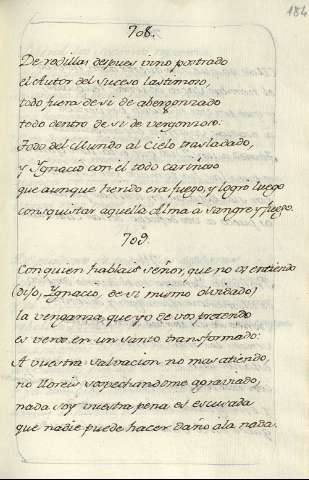 184
708.
De rodillas despues vino postrado
el Autor del suceso lastimoso,
todo fuera de si de abergonzado
todo dentro de si de vergonzoso:
Todo del Mundo al Cielo trasladado,
y Ygnacio con él todo cariñoso
que aunque herido era fuego, y logró luego
consquistar aquella Alma à sangre y fuego.
709.
Con quien hablais señor, que no os entiendo
(dijo, Ygnacio, de si mismo olvidado)
la venganza que yo de vos pretendo
es veros en un santo transformado:
A vuestra salvacion no mas atiendo,
no lloreis sospechandome agraviado,
nada soy vuestra pena es escusada
que nadie puede hacer daño ala nada.